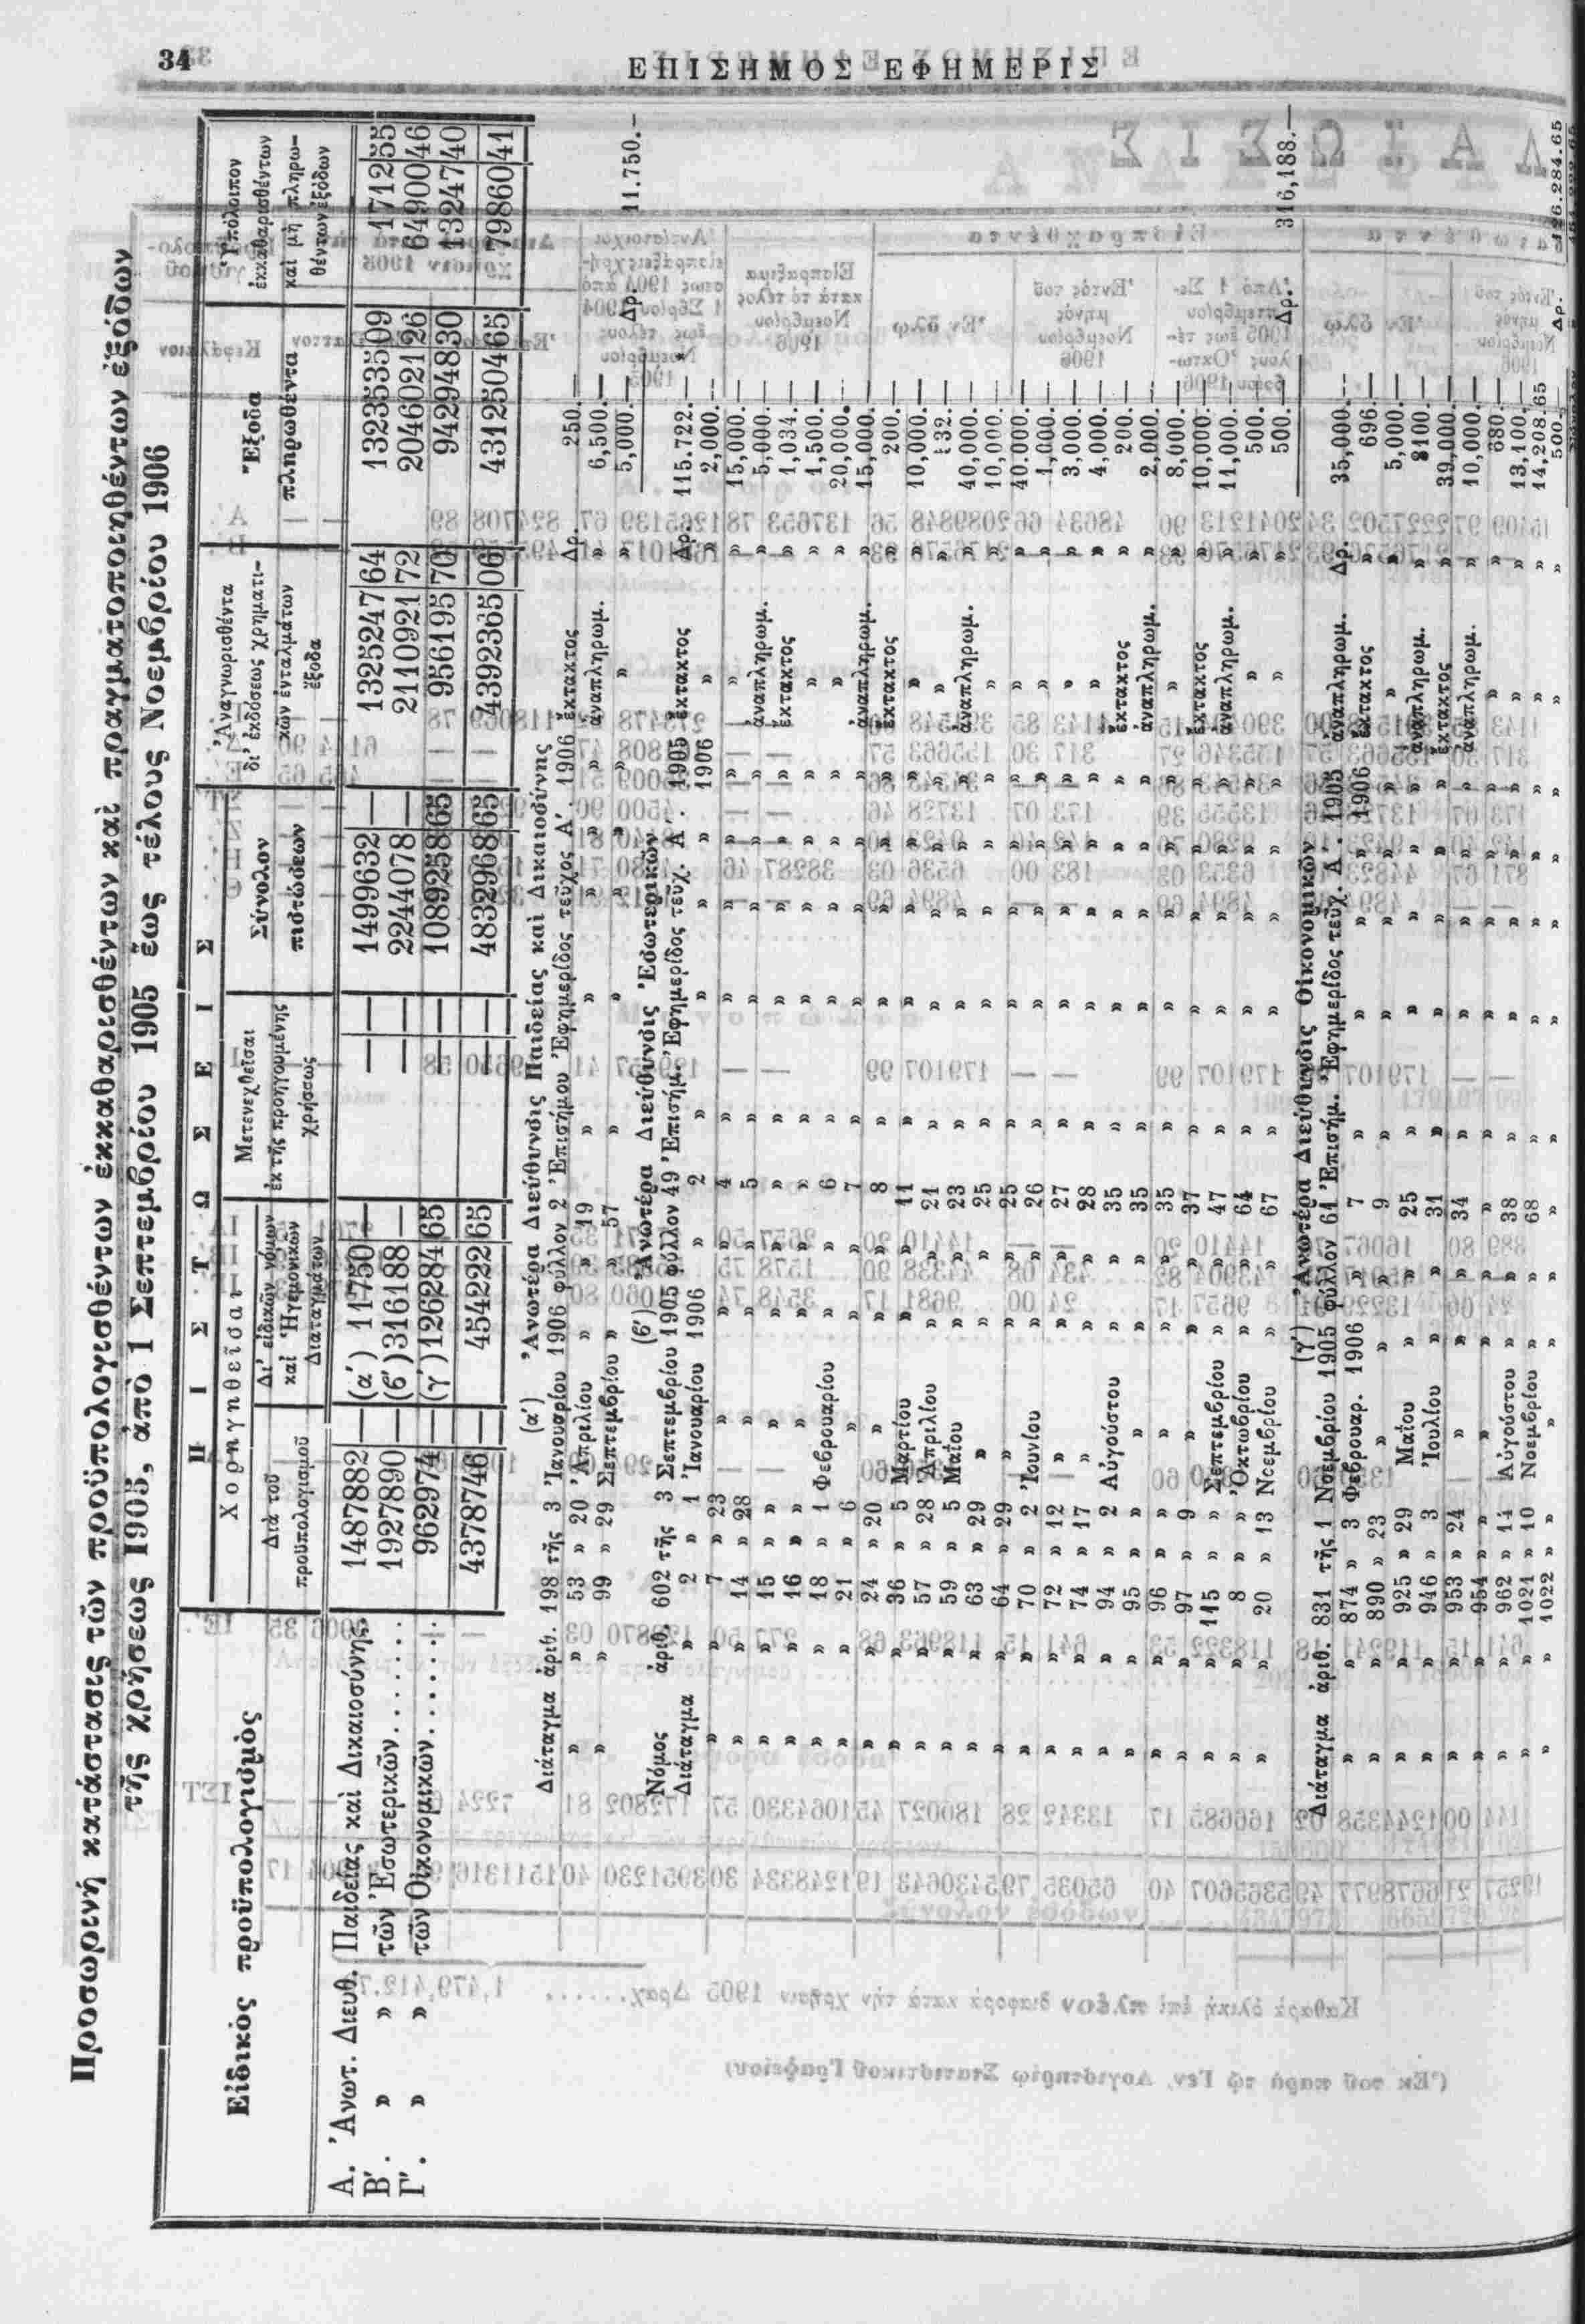 34
ΕΠΙΣΗΜΟΣ ΕΦΗΜΕΡΙΣ
Προσωρινή κατάστασις τῶν προϋπολογισθέντων ἐκκαθαρισθέντων καὶ πραγματοποιηθέντων ἐξόδων
τῆς χρήσεως 1905, ἀπὸ 1 Σεπτεμβρίου 1905 ἕως τέλους Νοεμβρίου 1906
Εἰδικὸς προϋπολογισμὸς
ΠΙΣΤΩΣΕΙΣ
Χορηγηθεῖσαι
Διὰ τοῦ προϋπολογισμοῦ
Δι' εἰδικῶν νόμων καὶ Ἡγεμονικῶν Διαταγμάτων
Μετενεχθεῖσαι ἐκ τῆς προηγουμένης χρήσεως
Σύνολον πιστώσεων
Ἀναγνωρισθέντα δι' ἐκδόσεως χρηματικῶν ἐνταλμάτων ἔξοδα
Ἔξοδα πληρωθέντα
Ὑπόλοιπον ἐκκαθαρισθέντων καὶ μὴ πληρωθέντων ἐξόδων
Α. Ἀνωτ. Διευθ. Παιδείας καὶ Δικαιοσύνης 1487882 — (α') 11750 — — — 1499632 — 1325247 64 1323535 09 1712 55
Β'. » » τῶν Ἐσωτερικῶν...... 1927890 — (β') 316188 — — — 2244078 — 2110921 72 2046021 26 64900 46
Γ'. » » τῶν Οἰκονομικῶν...... 962974 — (γ') 126284 65 — — 1089258 65 956195 70 942948 30 13247 40
4378746 — 454222 65 — — 4832968 65 4392365 06 4312504 65 79860 41
(α') Ἀνωτέρα Διεύθυνσις Παιδείας καὶ Δικαιοσύνης
Διάταγμα ἀριθ. 198 τῆς 3 Ἰανουαρίου 1906 φύλλον 2 Ἐπισήμου Ἐφημερίδος τεῦχος Α'. 1906 ἔκτακτος Δρ. 250.—
» » 53 » 20 Ἀπριλίου » » 19 » » » » » ἀναπληρωμ. » 6,500.—
» » 99 » 29 Σεπτεμβρίου » » 57 » » » » » » » 5,000.— Δρ. 11.750.—
(β') Ἀνωτέρα Διεύθυνσις Ἐσωτερικῶν
Νόμος ἀριθ. 602 τῆς 3 Σεπτεμβρίου 1905 φύλλον 49 Ἐπισήμ. Ἐφημερίδος τεῦχ. Α'. 1905 ἔκτακτος Δρ. 115.722.—
Διάταγμα » 2 » 1 Ἰανουαρίου 1906 » 2 » » » » 1906 » » 2,000.—
» » 7 » 23 » » » 4 » » » » » » » 15,000.—
» » 14 » 28 » » » 5 » » » » » ἀναπληρωμ. » 5,000.—
» » 15 » » » » » » » » » » » ἔκτακτος » 1,034.—
» » 16 » » » » » » » » » » » » » 1,500.—
» » 18 » 1 Φεβρουαρίου » » 6 » » » » » » » 20,000.—
» » 21 » 6 » » » 7 » » » » » ἀναπληρωμ. » 15,000.—
» » 24 » 20 » » » 8 » » » » » ἔκτακτος » 200.—
» » 36 » 5 Μαρτίου » » 11 » » » » » » » 10,000.—
» » 57 » 28 Ἀπριλίου » » 21 » » » » » » »
» » 59 » 5 Μαΐου » » 23 » » » » » ἀναπληρωμ. » 40,000.—
» » 63 » 29 » » » 25 » » » » » » » 10,000.—
» » 64 » 29 » » » 25 » » » » » » » 40.000.—
» » 70 » 2 Ἰουνίου » » 26 » » » » » » » 1,000.—
» » 72 » 12 » » » 27 » » » » » » » 3,000.—
» » 74 » 17 » » » 28 » » » » » » » 4,000.—
» » 94 » 2 Αὐγούστου » » 35 » » » » » ἔκτακτος » 200.—
» » 95 » » » » » 35 » » » » » ἀναπληρωμ. » 2,000.—
» » 96 » » » » » 35 » » » » » » » 8,000.—
» » 97 » 9 » » » 37 » » » » » ἔκτακτος » 10,000.—
» » 115 » » Σεπτεμβρίου » » 47 » » » » » ἀναπληρωμ. » 11,000.—
» » 8 » » Ὀκτωβρίου » » 64 » » » » » » » 500.—
» » 20 » 13 Νοεμβρίου » » 67 » » » » » » » 500.— Δρ. 316,188.—
(γ') Ἀνωτέρα Διεύθυνσις Οἰκονομικῶν
Διάταγμα ἀριθ. 831 τῆς 1 Νοεμβρίου 1905 φύλλον 61 Ἐπισήμ. Ἐφημερίδος τεῦχ. Α'. 1905 ἀναπληρωμ. Δρ. 35,000.—
» » 874 » 3 Φεβρουαρ. 1906 » 7 » » » » 1906 ἔκτακτος » 696.—
» » 890 » 23 » » » 9 » » » » » » » 5,000.—
» » 925 » 29 Μαΐου » » 25 » » » » » ἀναπληρωμ. » 8100.—
» » 946 » 3 Ἰουλίου » » 31 » » » » » ἔκτακτος » 39,000.—
» » 953 » 24 » » » 34 » » » » » ἀναπληρωμ. » 10,000.—
» » 954 » » » » » » » » » » » » » 680.—
» » 962 » 14 Αὐγούστου » » 38 » » » » » » » 13,100.—
» » 1021 » 10 Νοεμβρίου » » 68 » » » » » » » 14,208.65
» » 1022 » » » » » » » » » » » » » 500.— Δρ. 126.284.65